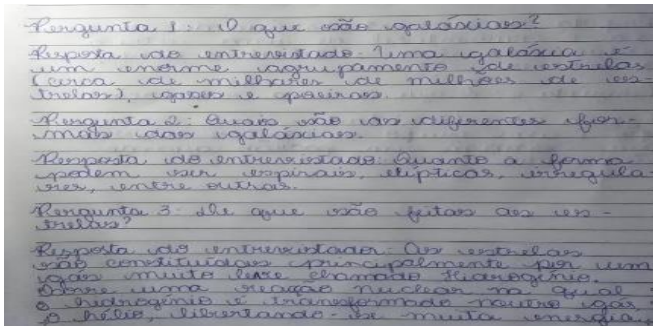 Pergunta 1: O que são galáxias?
Resposta do entrevistado: Uma galáxia é
um enorme agrupamento de estrelas
(cerca de milhares de milhões de es-
trelas), gases e poeiras.
Pergunta 2: Quais são as diferentes for-
mas das galáxias.
Resposta do entrevistado: Quanto a forma
podem ser espirais, elípticas, irregula-
res, entre outras.
Pergunta 3: De que são feitas as es-
trelas?
Resposta do entrevistador: As estrelas
são constituídas principalmente por um
gás muito leve chamado Hidrogênio.
Ocorre uma reação nuclear na qual
o hidrogênio é transformado noutro gás,
o hélio, libertando-se muita energia